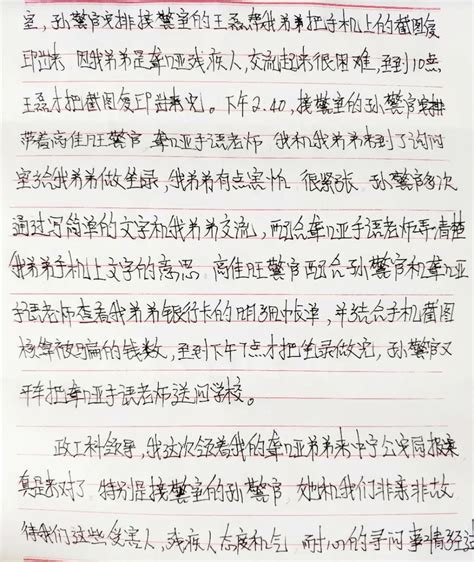 室，孙警官安排接警室的王磊帮我弟弟把手机上的截图复
印出来 因我弟弟是聋哑残疾人，交流起来很困难，至到10点
王磊才把截图复印出来完。下午2.40，接警室的孙警官安排
带着高佳旺警官 聋哑手语老师 我和我弟弟来到了询问
室给我弟弟做笔录，我弟弟有点害怕 很紧张 孙警官多次
通过写简单的文字和我弟弟交流，配合聋哑手语老师弄清楚
我弟弟手机上文字的意思 高佳旺警官配合孙警官和聋哑
手语老师查看我弟弟银行卡的明细帐单，并结合手机截图
核算被骗的钱数，至到下午7点才把笔录做完，孙警官又
开车把聋哑手语老师送回学校。
政工科领导，我这次领着我的聋哑弟弟来中宁公安局报案
真是来对了 特别是接警室的孙警官 她和我们非亲非故
待我们这些受害人，残疾人态度和气 耐心的寻问事情经过